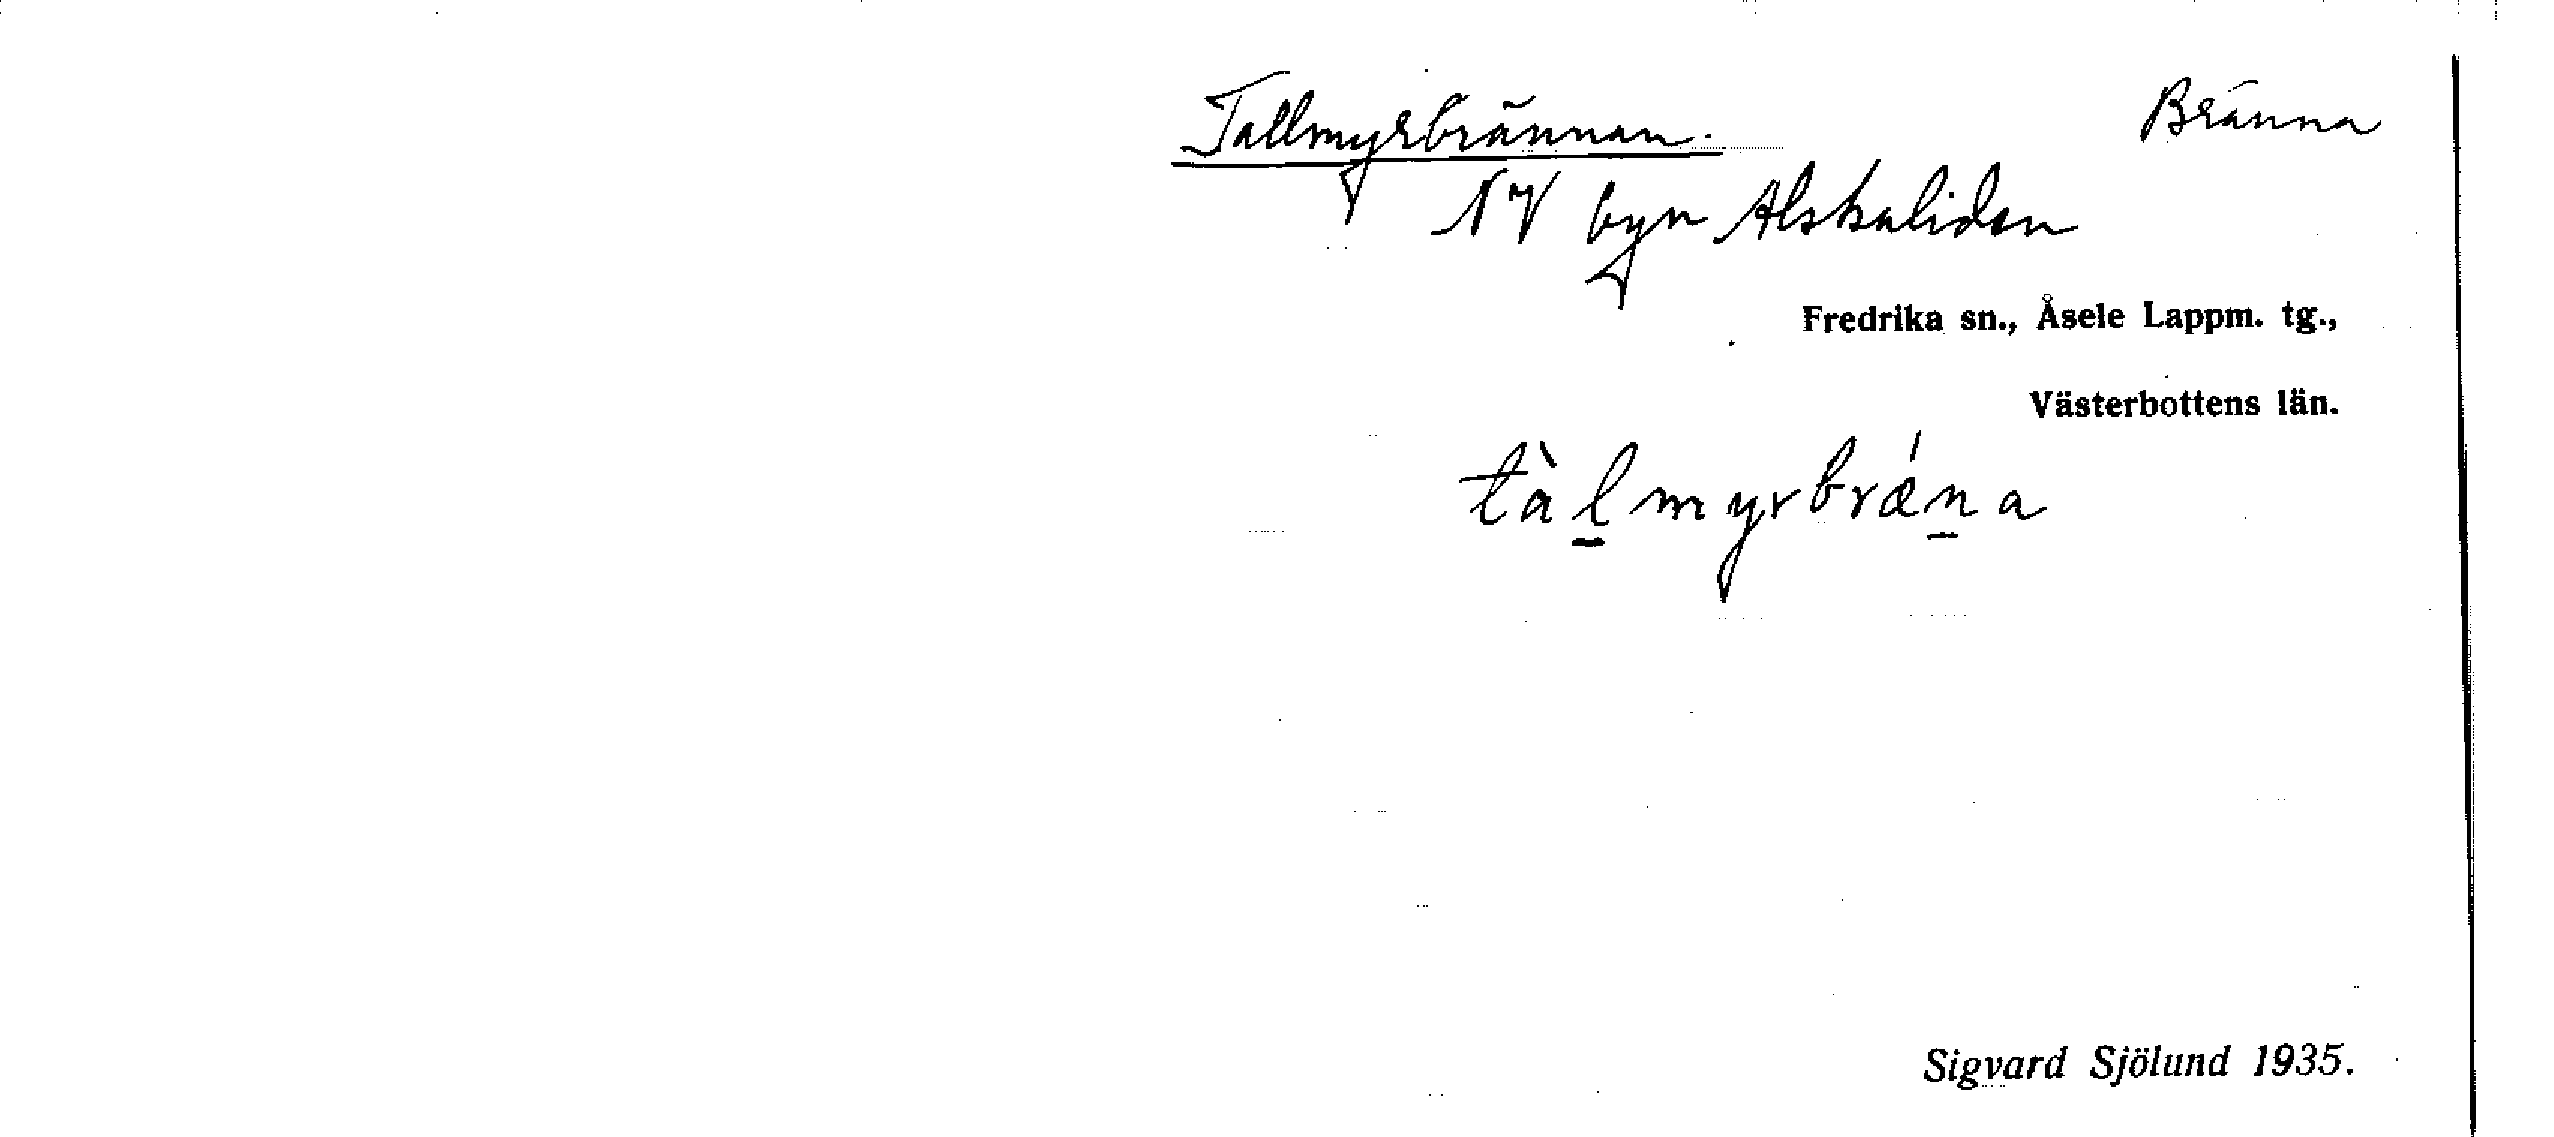 Tallmyrbrännan. Bränna
NV byn Alskaliden
Fredrika sn., Åsele Lappm. tg.,
Västerbottens län.
tàl̲myrbrǽn̲a
Sigvard Sjölund 1935.